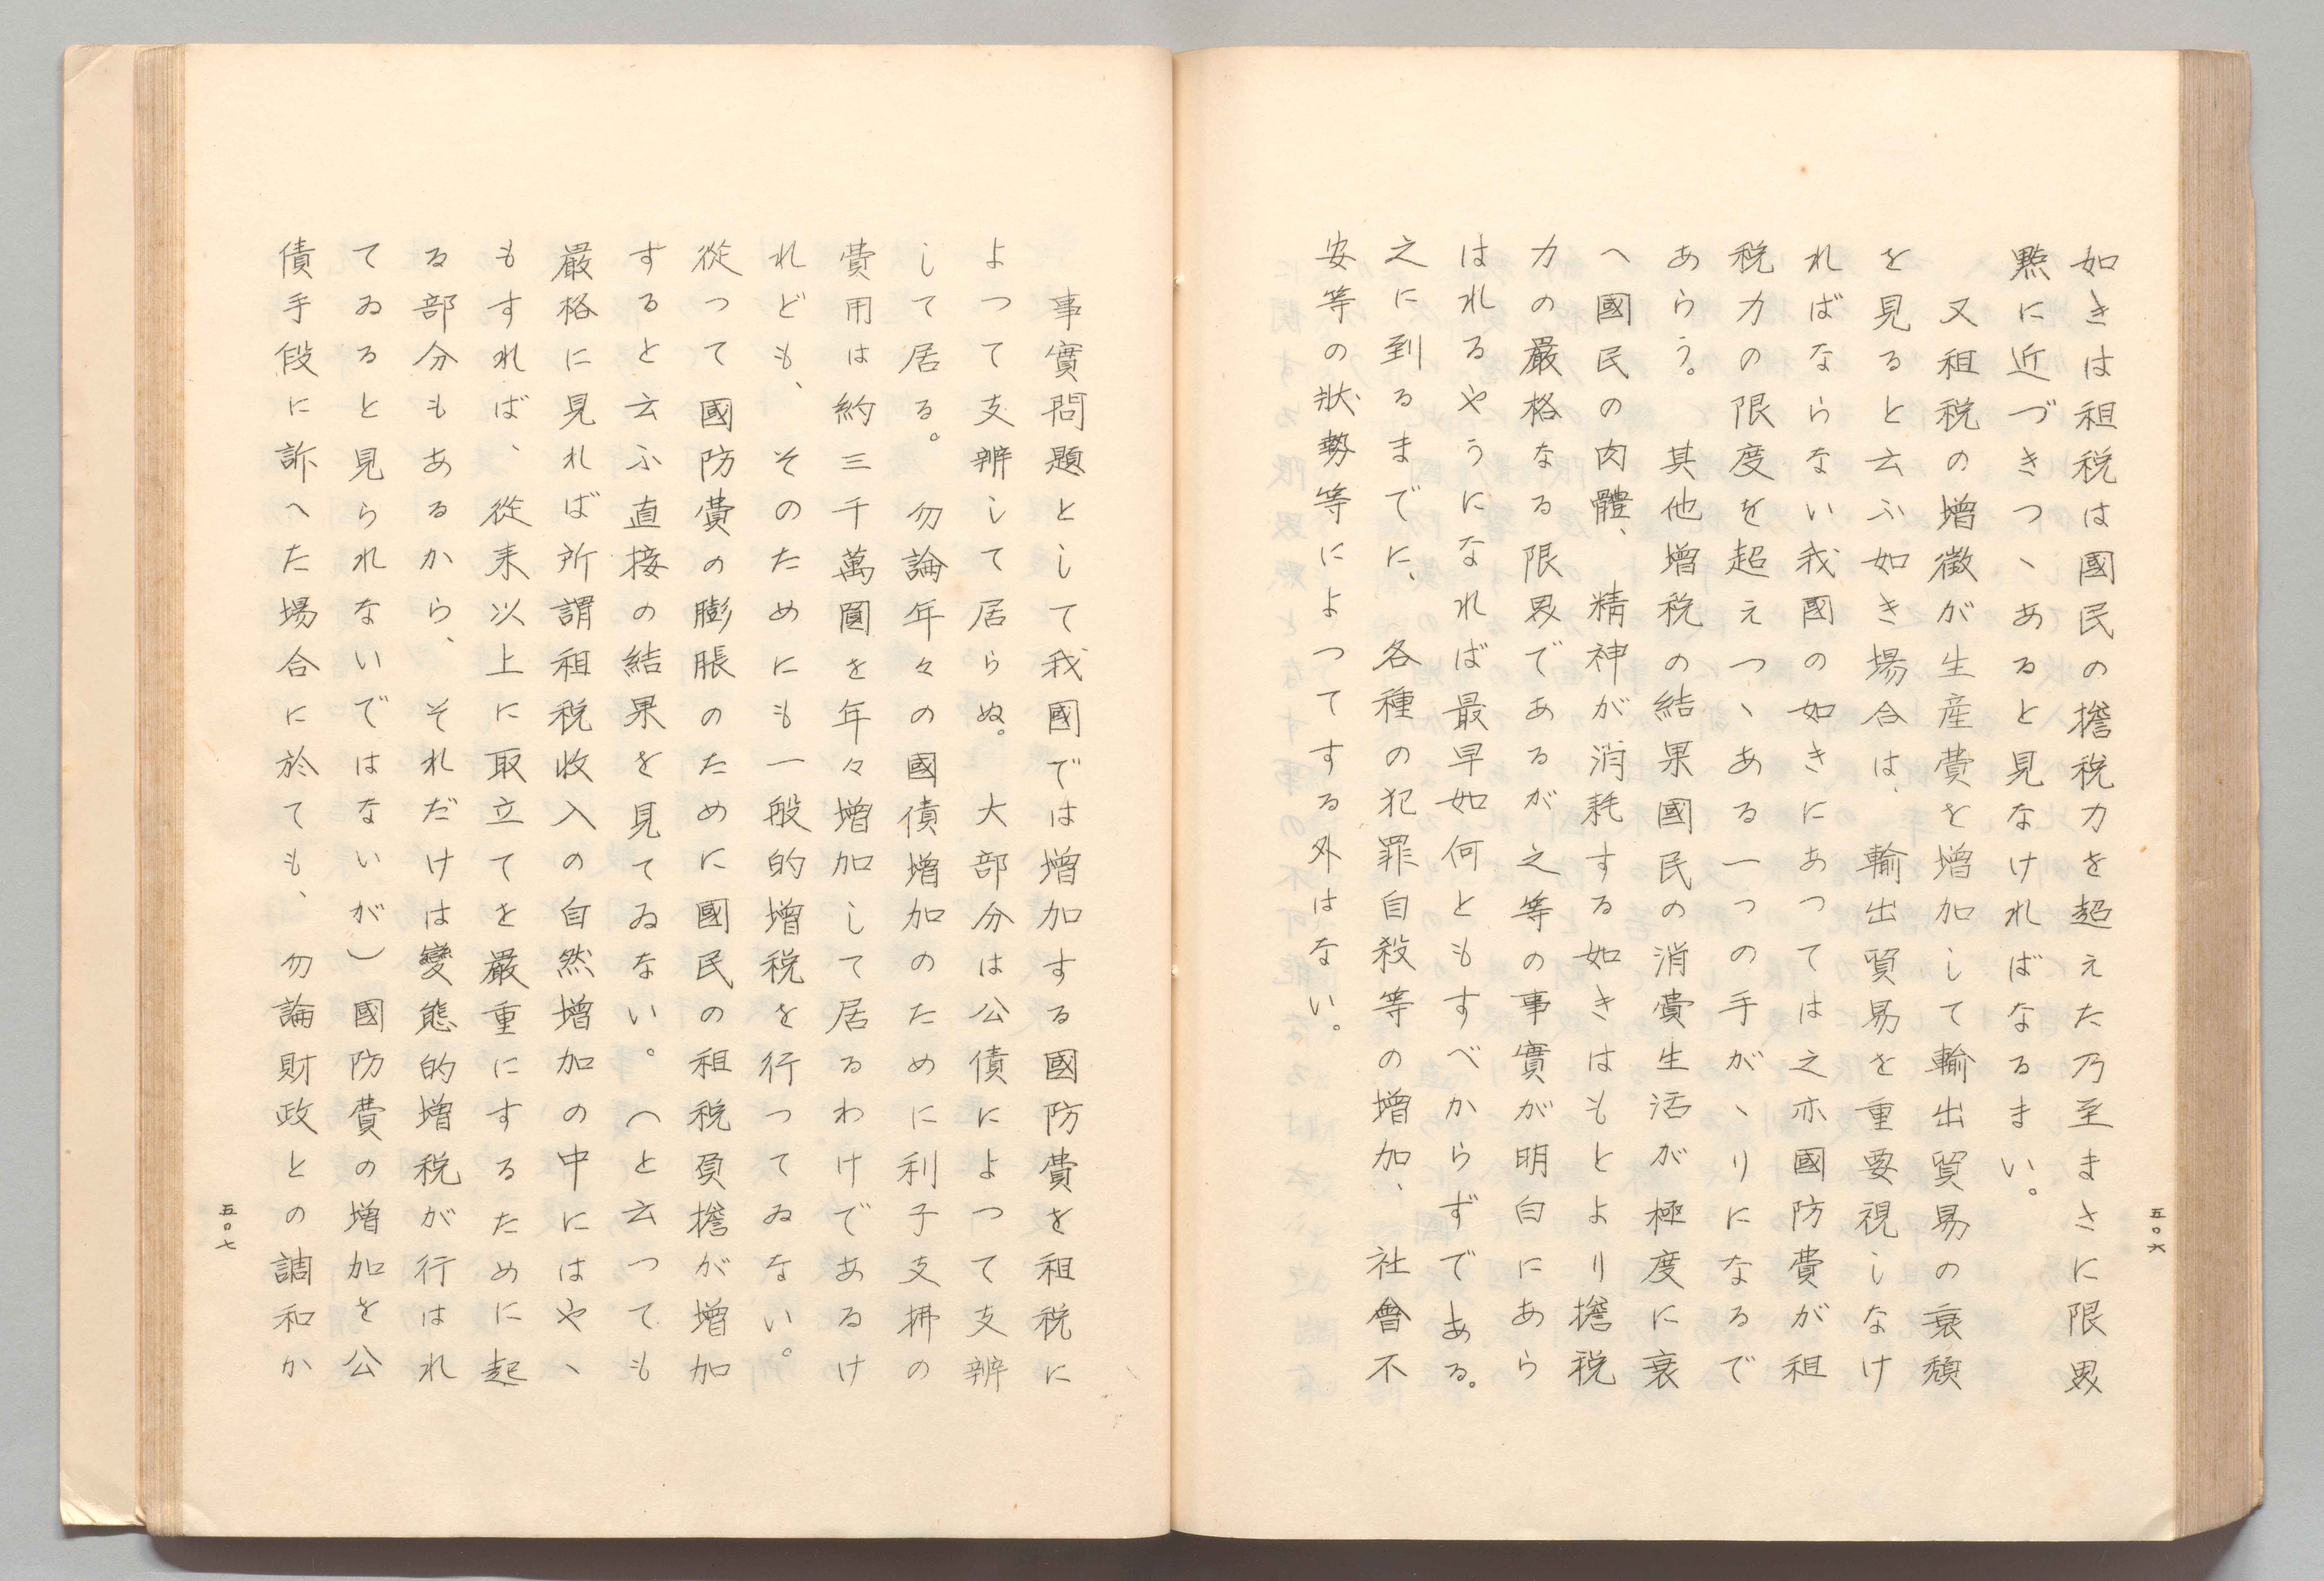 如きは租税は國民の擔税力を超えた乃至まさに限界
點に近づきつゝあると見なければなるまい。
又租税の増徴が生産費を増加して輸出貿易の衰頽
を見ると云ふ如き場合は、輸出貿易を重要視しなけ
ればならない我國の如きにあつては之亦國防費が租
税力の限度を超えつゝある一つの手がゝりになるで
あらう。其他増税の結果國民の消費生活が極度に衰
へ國民の肉體、精神が消耗する如きはもとより擔税
力の嚴格なる限界であるが之等の事實が明白にあら
はれるやうになれば最早如何ともすべからずである。
之に到るまでに、各種の犯罪自殺等の増加、社會不
安等の狀勢等によつてする外はない。
五〇六
事實問題として我國では増加する國防費を租税に
よつて支辨して居らぬ。大部分は公債によつて支辨
して居る。勿論年々の國債増加のために利子支拂の
費用は約三千萬圓を年々増加して居るわけであるけ
れども、そのためにも一般的増税を行つてゐない。
從つて國防費の膨脹のために國民の租税負擔が増加
すると云ふ直接の結果を見てゐない。（と云つても
嚴格に見れば所謂租税收入の自然増加の中にはやゝ
もすれば、從來以上に取立てを嚴重にするために起
る部分もあるから、それだけは變態的増税が行はれ
てゐると見られないではないが）國防費の増加を公
債手段に訴へた場合に於ても、勿論財政との調和か
五〇七